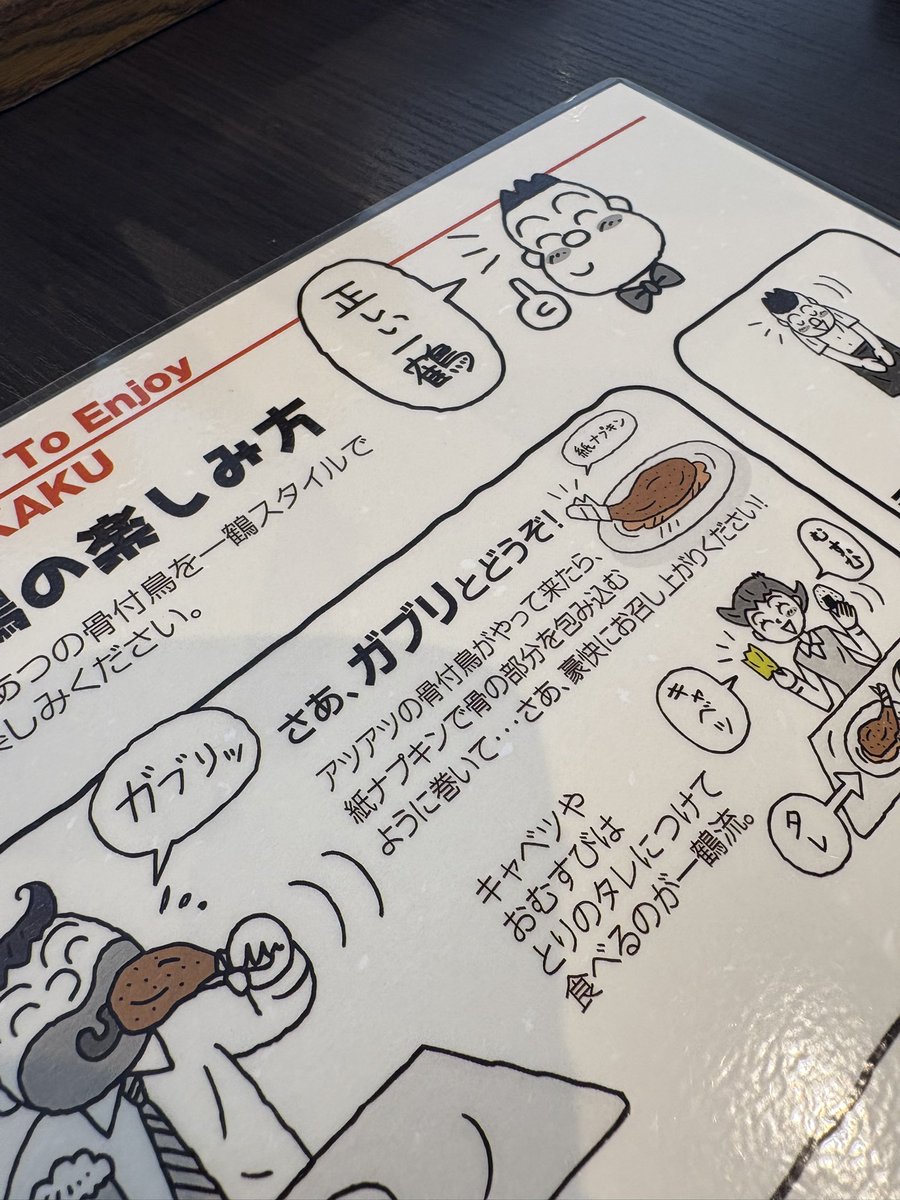 To Enjoy
KAKU
正しい一鶴
の楽しみ方
あつの骨付鳥を一鶴スタイルで
楽しみください。
紙ナプキン
さあ、ガブリとどうぞ!
アツアツの骨付鳥がやって来たら、
紙ナプキンで骨の部分を包み込む
ように巻いて…さあ、豪快にお召し上がりください!
ガブリッ
むすび
キャベツ
タレ
キャベツや
おむすびは
とりのタレにつけて
食べるのが一鶴流。